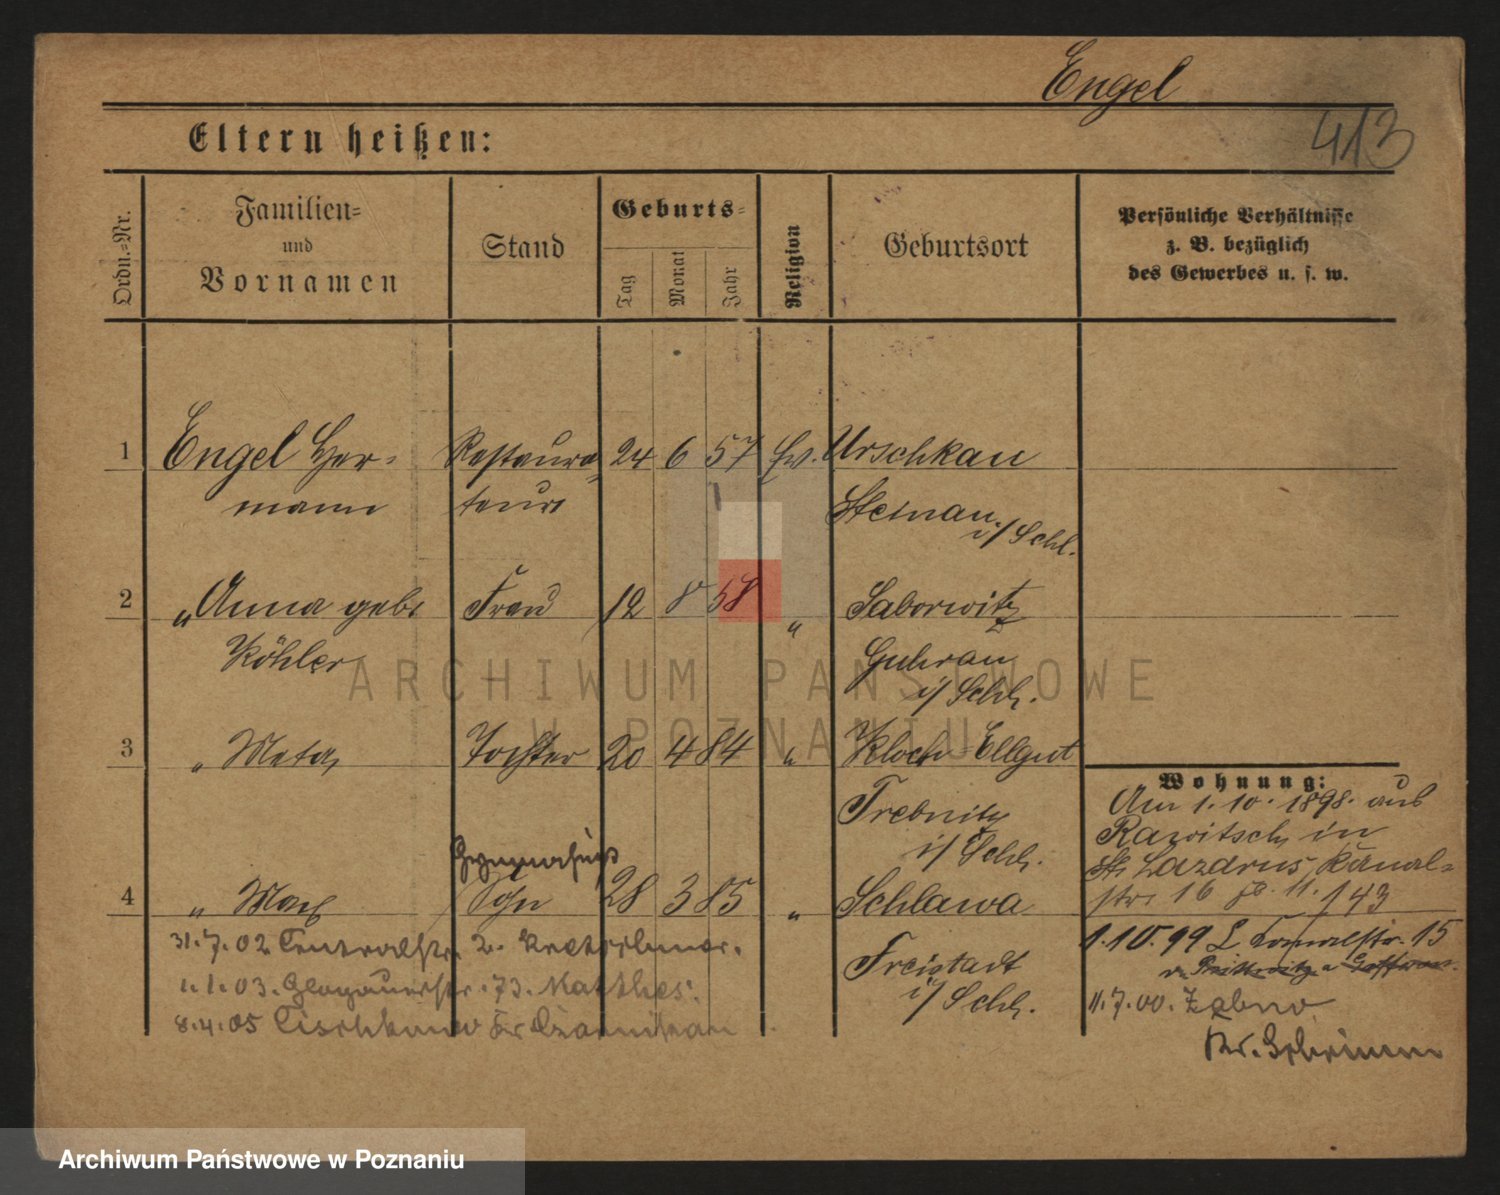 Engel
413
Eltern heißen:
Ordn.-Nr.
Familien-
und
Vornamen
Stand
Geburts-
Tag
Monat
Jahr
Religion
Geburtsort
Persönliche Verhältnisse
z. B. bezüglich
des Gewerbes u. s. w.
1 Engel Her- Restaura- 24 6 57 Ev. Urschkau
mann teur Steinau
i/Schl.
2 " Anna geb. Frau 12 8 58 " Saborwitz
Köhler Guhrau
i/Schl.
3 " Meta Tochter 20 4 84 " Kloch-Ellgut
Trebnitz
i/Schl.
Wohnung:
Am 1.10.1898. aus
Rawitsch in
St. Lazarus, Kanal-
str. 16 11. 143
Gymnasiast
4 " Max Sohn 28 3 85 " Schlawa
Freistadt
i/Schl.
1.10.99 L Kanalstr. 15
11.7.00. Zabno
Kr. Schrimm
31.7.02 Centralstr. 2.
1.1.03. Glogauerstr. 73. Matthes.
8.4.05
ARCHIWUM PAŃSTWOWE
W POZNANIU
Archiwum Państwowe w Poznaniu